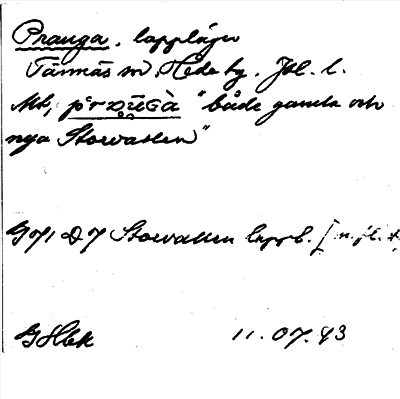 Prauga, lappläger
Tännäs sn, Hede tg, Jtl. l.
Mt,
"både gamla och
nya Storvallen"
GV71 D 7 Storvallen lappb. [n. fl. t.
11.07.93